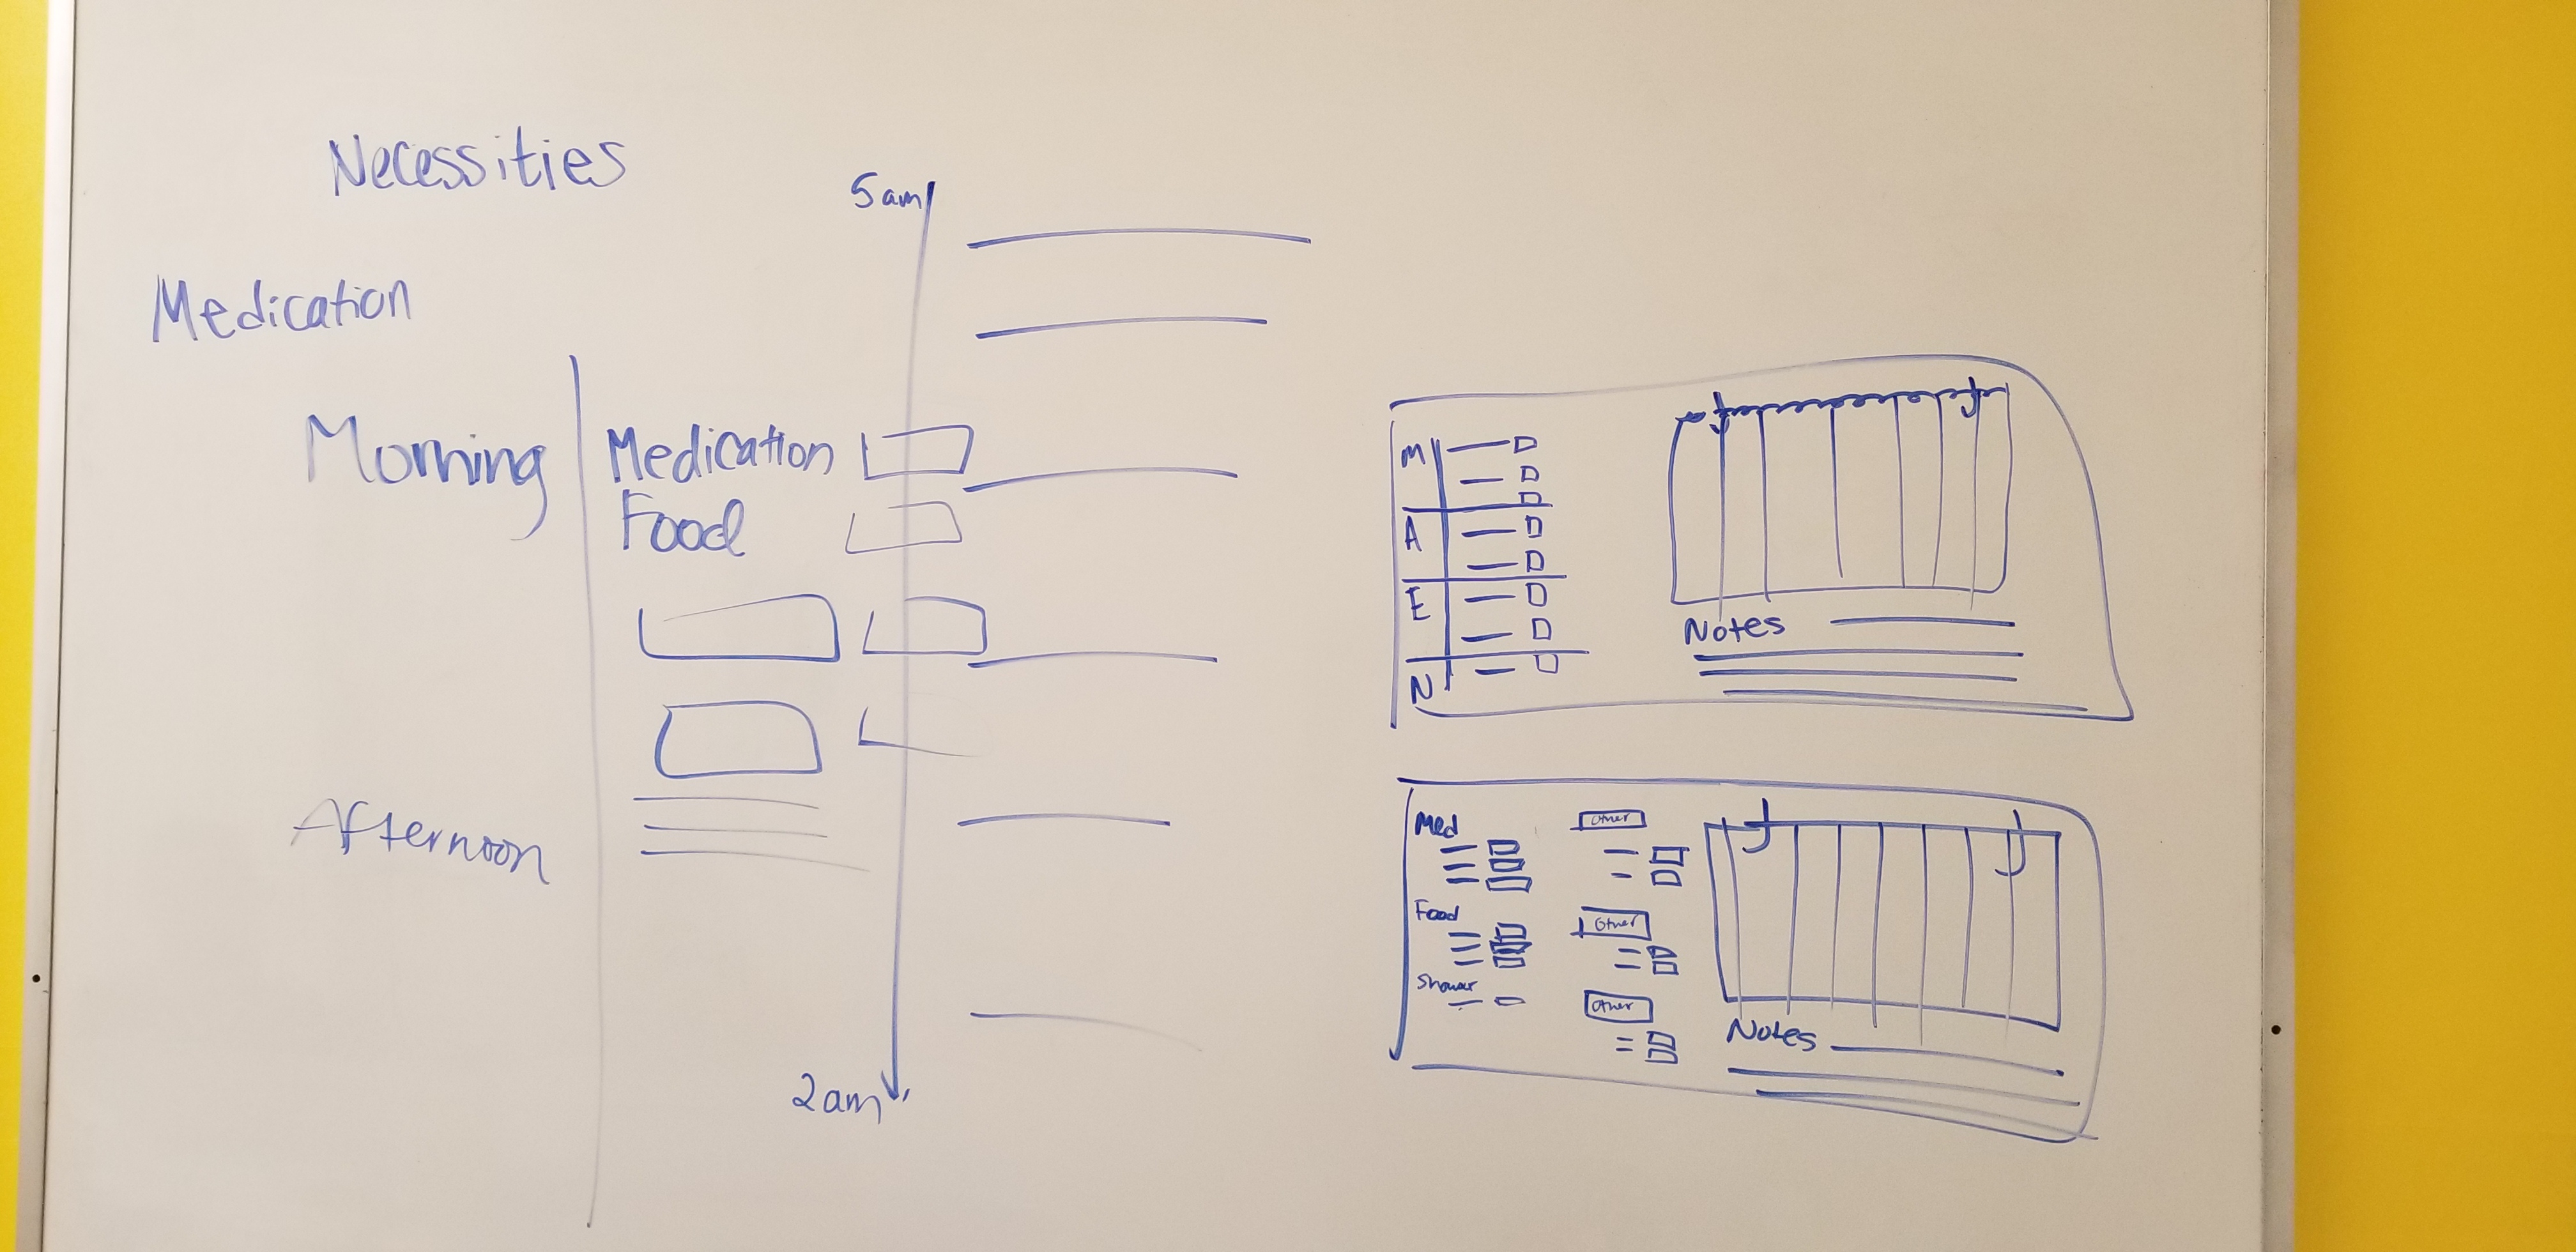 Necessities
5am
Medication
Morning
Medication
Food
Afternoon
2am
M
A
E
N
Notes
Med
Food
Shower
Other
Other
Other
Notes